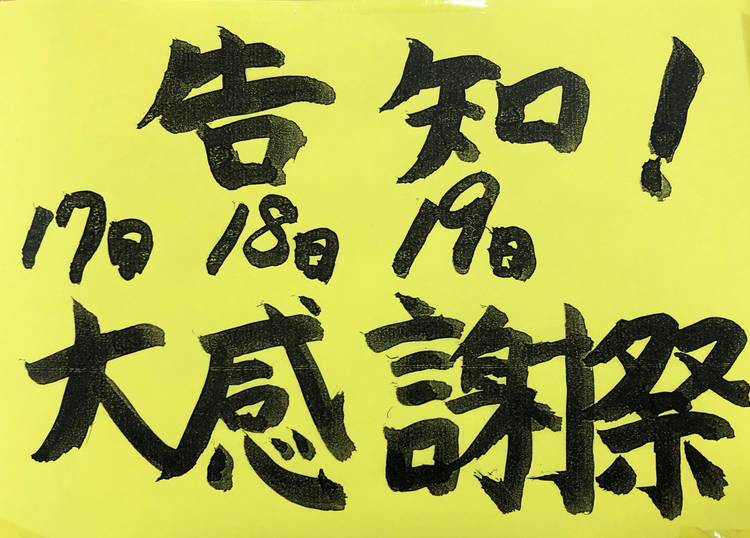 告知!
17日 18日 19日
大感謝祭